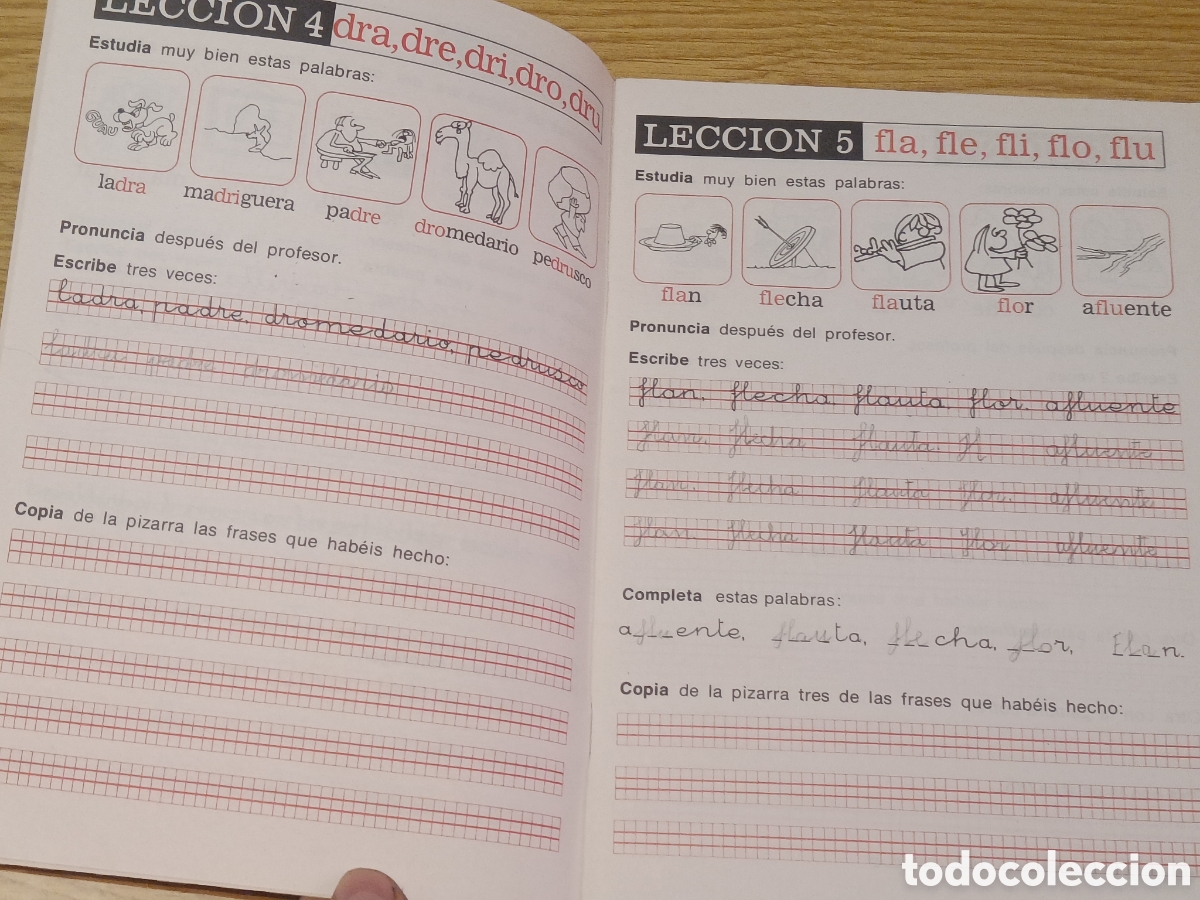 LECCION 4 dra, dre, dri, dro, dru
Estudia muy bien estas palabras:
GUAU
ladra madriguera padre dromedario pedrusco
Pronuncia después del profesor.
Escribe tres veces:
ladra, padre, dromedario, pedrusco
Copia de la pizarra las frases que habéis hecho:
LECCION 5 fla, fle, fli, flo, flu
Estudia muy bien estas palabras:
flan flecha flauta flor afluente
Pronuncia después del profesor.
Escribe tres veces:
flan, flecha, flauta, flor, afluente
flan, flecha flauta, fl afluente
flan, flecha flauta flor, afluente
flan, flecha flauta flor afluente
Completa estas palabras:
afluente, flauta, flecha, flor, flan.
Copia de la pizarra tres de las frases que habéis hecho:
todocoleccion